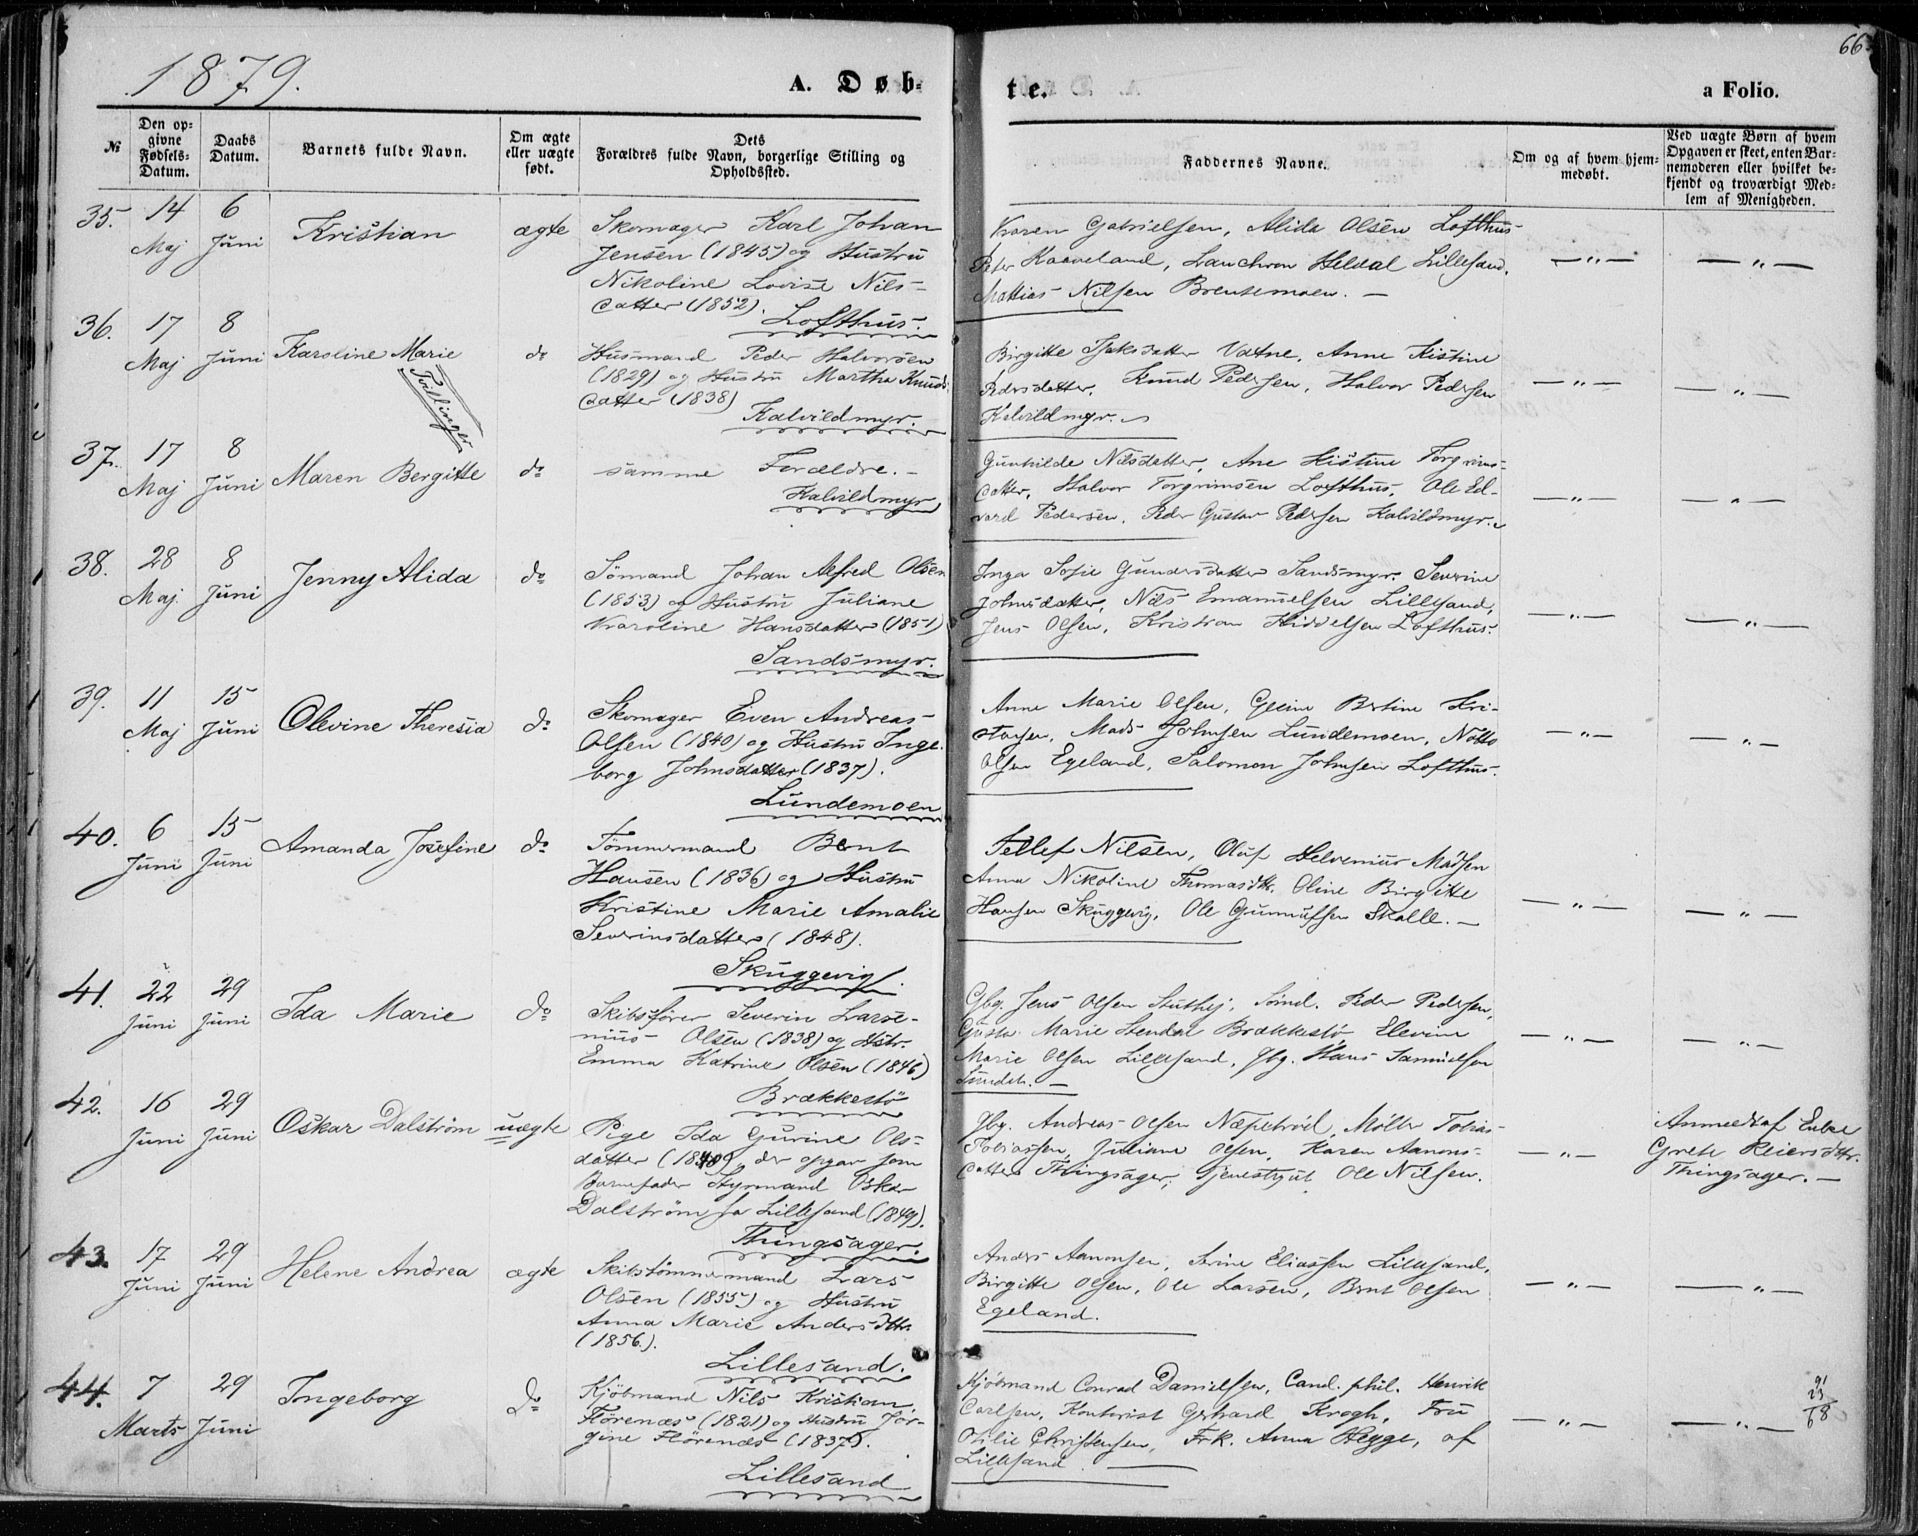 1879.
A. Døb-
te.
a Folio.
66
№
Den op-
givne
Fødsels-
Datum.
Daabs
Datum.
Barnets fulde Navn.
Om ægte
eller uægte
født.
Dets
Forældres fulde Navn, borgerlige Stilling og
Opholdssted.
Faddernes Navne.
Om og af hvem hjem-
medøbt.
Ved uægte Børn af hvem
Opgaven er skeet, enten Bar-
nemoderen eller hvilket be-
kjendt og troværdigt Med-
lem af Menigheden.
35.
14
Maj
6
Juni
Kristian
ægte
Skomager Karl Johan
Jensen (1845) og Hustru
Nikoline Lovise Nils-
datter (1852).
Lofthus.
Karen Gabrielsen, Alida Olsen Lofthus
Peter Kaaveland, Heldal Lillesand,
Mattias Nilsen Brentemoen. —
— „ —
— „ —
36.
17
Maj
8
Juni
Karoline Marie
Tvillinger
do
Husmand Peder Halvorsen
(1829) og Hustru Martha Knuds
datter (1838)
Kalvildmyr.
Birgitte Vatne, Anne Kistine
Pedersdatter, Knud Pedersen, Halvor Pedersen
Kalvildmyr.
— „ —
— „ —
37.
17
Maj
8
Juni
Maren Bergitte
do
samme Forældre. —
Kalvildmyr
Gunhilde Nilsdatter, Ane Kistine Torgrims-
datter, Halvor Torgrimsen Lofthus, Ole Ed-
vard Pedersen, Peder Gustav Pedersen Kalvildmyr.
— „ —
— „ —
38.
28
Maj.
8
Juni
Jenny Alida
do
Sömand Johan Alfred Olsen
(1853) og Hustru Juliane
Karoline Hansdatter (1851)
Sandsmyr.
Inga Sofie Gundersdatter Sandsmyr. Severine
Johnsdatter, Nils Emanuelsen Lillesand,
Jens Olsen, Kristian Lofthus.
— „ —
— „ —
39.
11
Maj
15
Juni
Olevine Theresia
do
Skomager Even Andreas
Olsen (1840) og Hustru Inge
borg Johnsdatter (1837).
Lundemoen
Anne Marie Olsen, Bertine Kri-
stensen, Mads Johnsen Lundemoen,
Olsen Egeland, Salomon Johnsen Lofthus.
— „ —
— „ —
40.
6
Juni
15
Juni
Amanda Josefine
do
Tömmermand Bent
Hansen (1836) og Hustru
Kristine Marie Amalie
Severinsdatter (1848).
Skuggevig.
Tellef Nilsen, Oluf Madsen
Anna Nikoline Thomasdtr. Oline Birgitte
Hansen Skuggevig, Ole Gunnufsen Skalle. —
— „ —
— „ —
41.
22
Juni
29
Juni
Ida Marie
do
Skibsfører Severin Larse-
nius Olsen (1838) og Hstr.
Emma Katrine Olsen (1846)
Brækkestö
Gbg. Jens Olsen Peder Pedersen,
Marie Brækkestö Elevine
Marie Olsen Lillesand, Gbg. Hans Samuelsen
— „ —
— „ —
42.
16
Juni
29
Juni
Oskar Dalström
uægte
Pige Ida Gurine Ols-
datter (1840), der opgav som
Barnefader Styrmand Oskar
Dalström fra Lillesand (1849).
Thingsager.
Gbg. Andreas Olsen Møller Tobias
Tobiassen, Juliane Olsen, Karen Aanons-
datter Thingsager, Tjenestegut Ole Nilsen.
— „ —
Anmeldt af Enke
Grete Reiersdtr.
Thingsager. —
43.
17
Juni
29
Juni
Helene Andrea
ægte
Skibstömmermand Lars
Olsen (1855) og Hustru
Anna Marie Andersdtr.
(1856).
Lillesand.
Anders Aanonsen, Eliassen Lillesand,
Birgitte Olsen, Ole Larsen, Bent Olsen
Egeland.
— „ —
— „ —
44.
7
Marts
29
Juni
Ingeborg
do
Kjöbmand Nils Kristian
Flörenæs (1821) og Hustru Jör-
gine Flörenæs (1837).
Lillesand
Kjöbmand Conrad Danielsen, Cand. phil. Henrik
Carlsen, Kontorist Gerhard Krogh, Fru
Otilie Christensen, Frk. Anna Hegge, af
Lillesand —
— „ —
— „ —